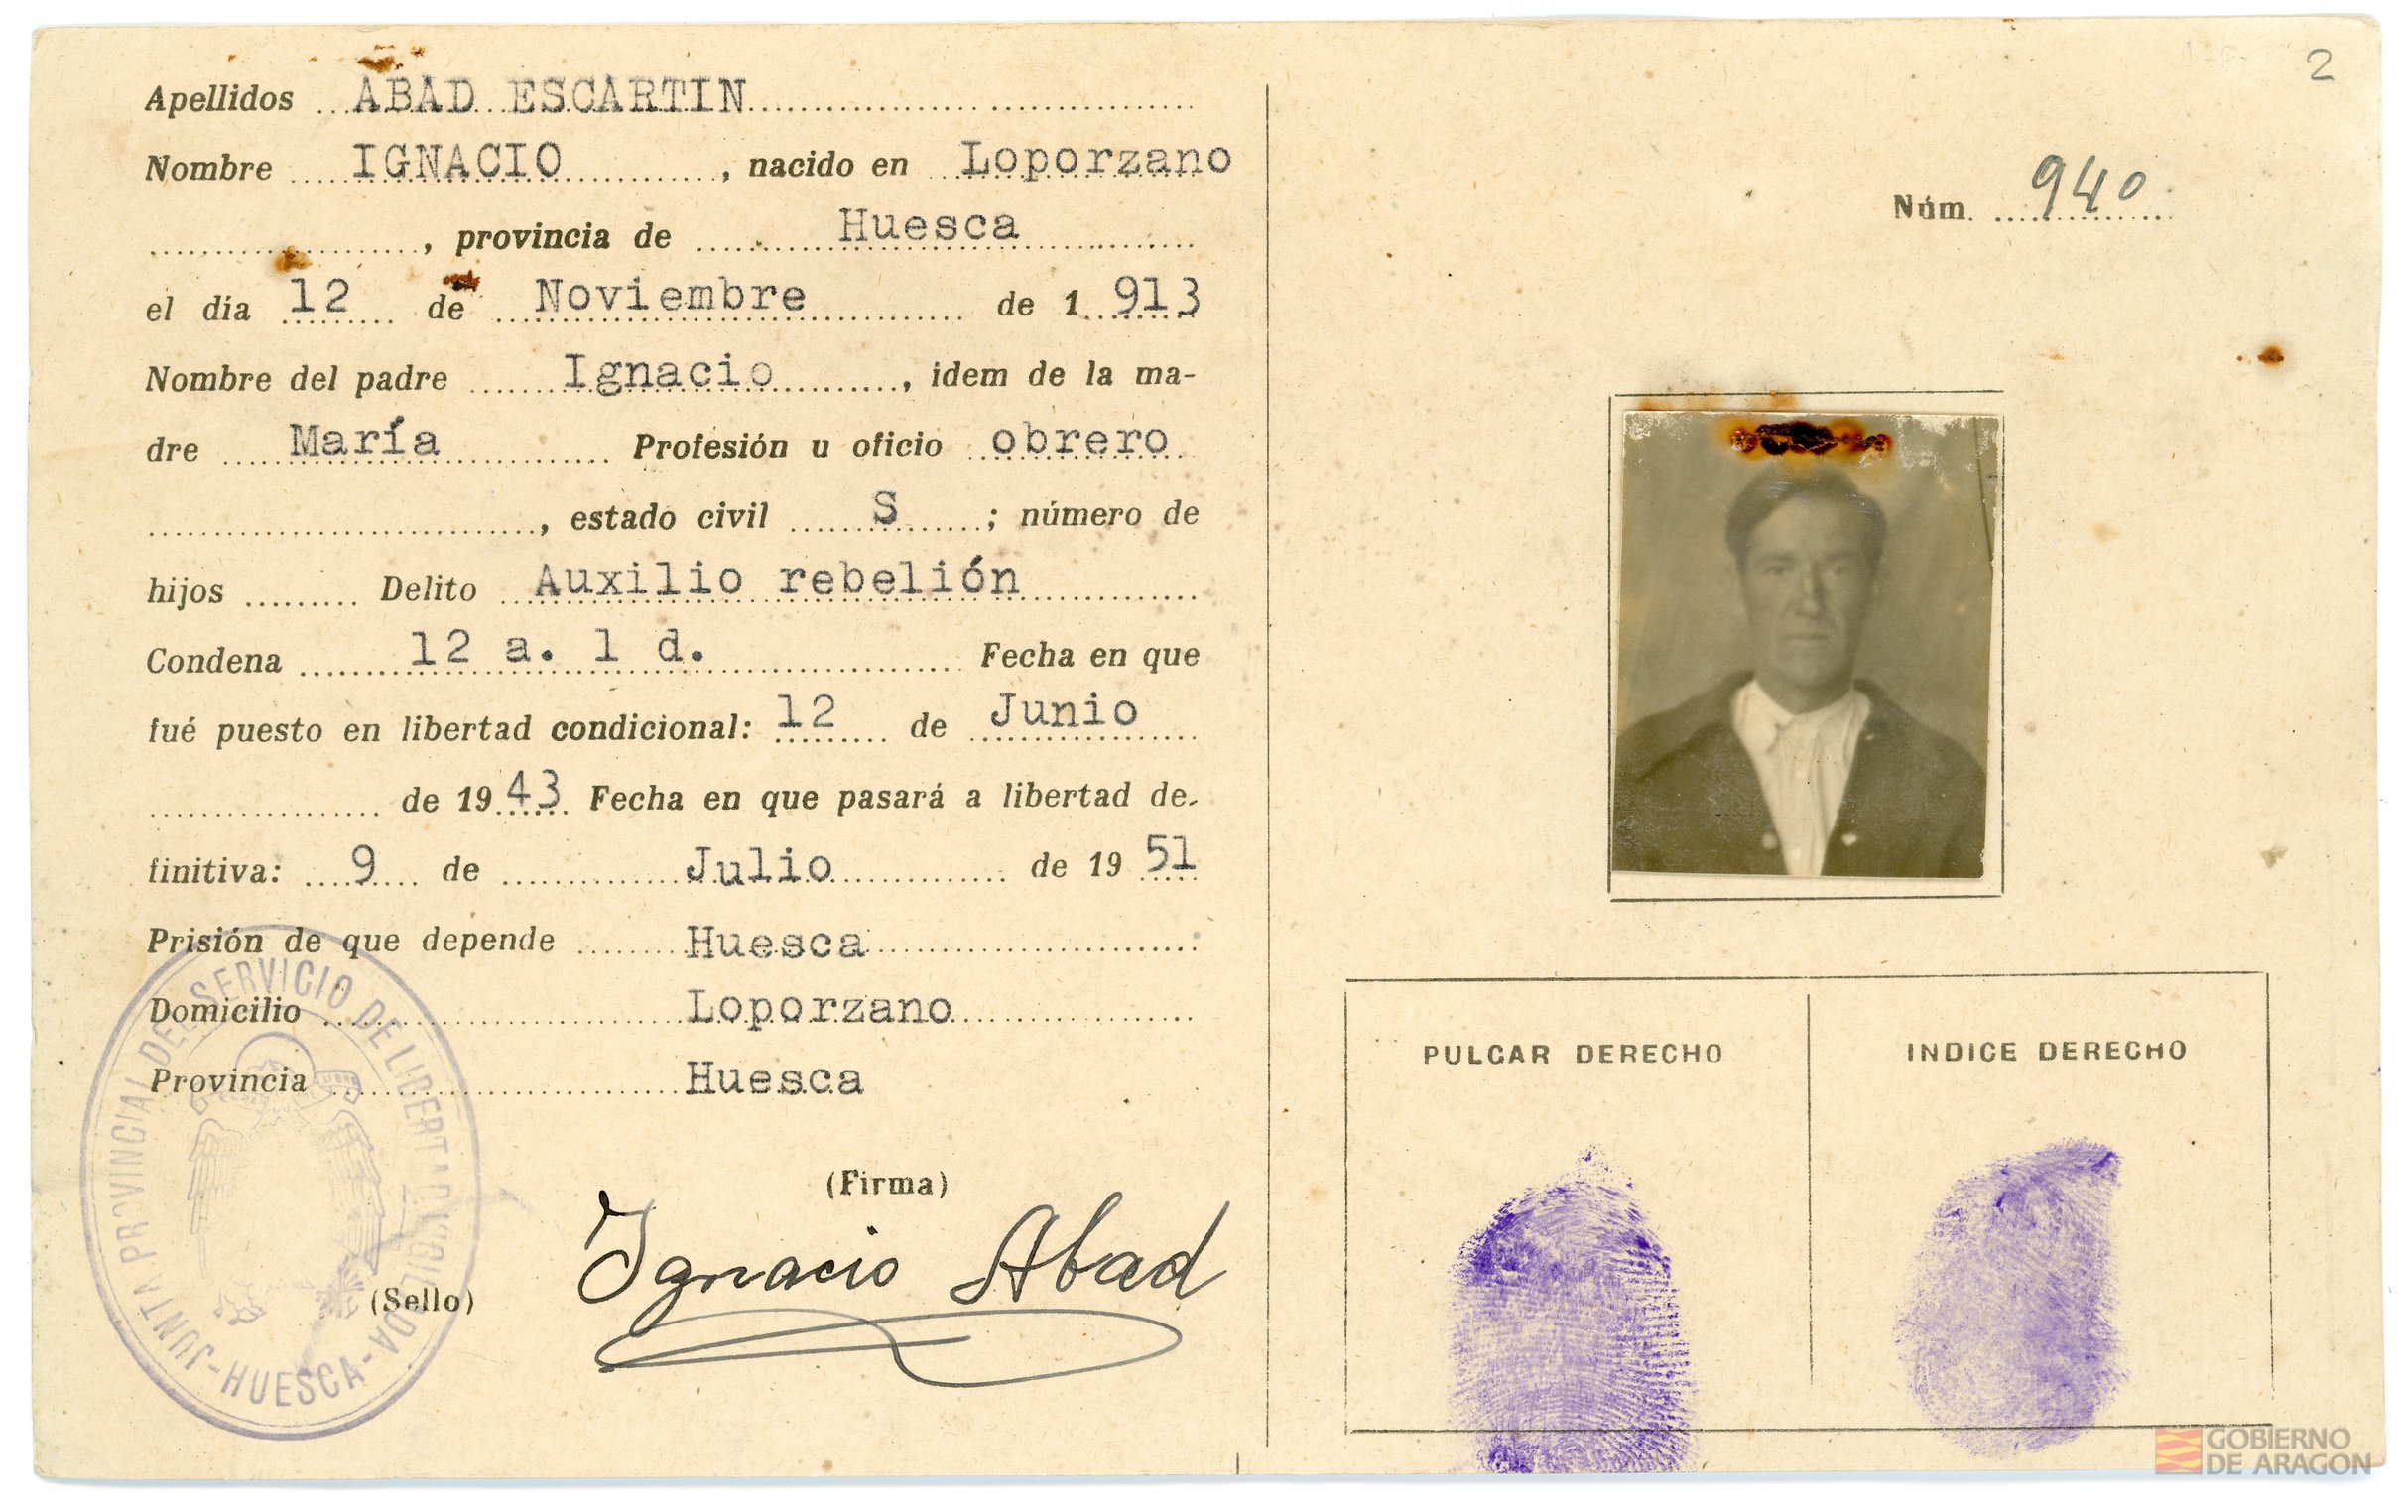 Apellidos ABAD ESCARTIN
Nombre IGNACIO, nacido en Loporzano
, provincia de Huesca
el día 12 de Noviembre de 1 913
Nombre del padre Ignacio, idem de la ma-
dre María Profesión u oficio obrero
, estado civil S; número de
hijos Delito Auxilio rebelión
Condena 12 a. 1 d. Fecha en que
fué puesto en libertad condicional: 12 de Junio
de 1943 Fecha en que pasará a libertad de-
finitiva: 9 de Julio de 1951
Prisión de que depende Huesca
Domicilio Loporzano
Provincia Huesca
(Firma)
Ignacio Abad
(Sello)
JUNTA PROVINCIAL DEL SERVICIO DE LIBERTAD VIGILADA
-HUESCA-
2
Núm. 940
PULGAR DERECHO
INDICE DERECHO
GOBIERNO
DE ARAGON